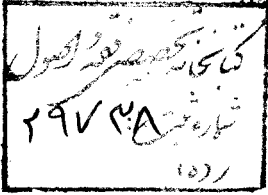 کتابخانه تخصصی فقه و اصول
شماره ثبت ۲۹۷۳۸
رده